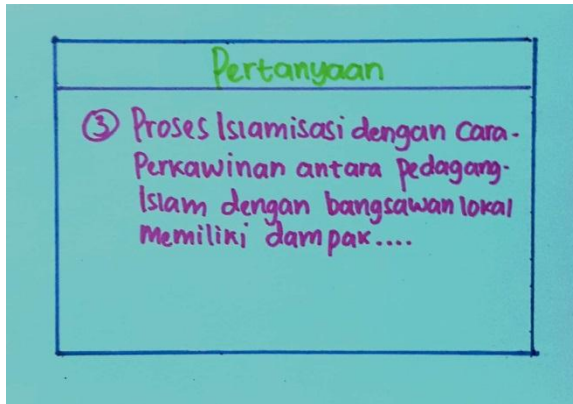 Pertanyaan
③ Proses Islamisasi dengan cara-
Perkawinan antara pedagang-
Islam dengan bangsawan lokal
Memiliki dampak....